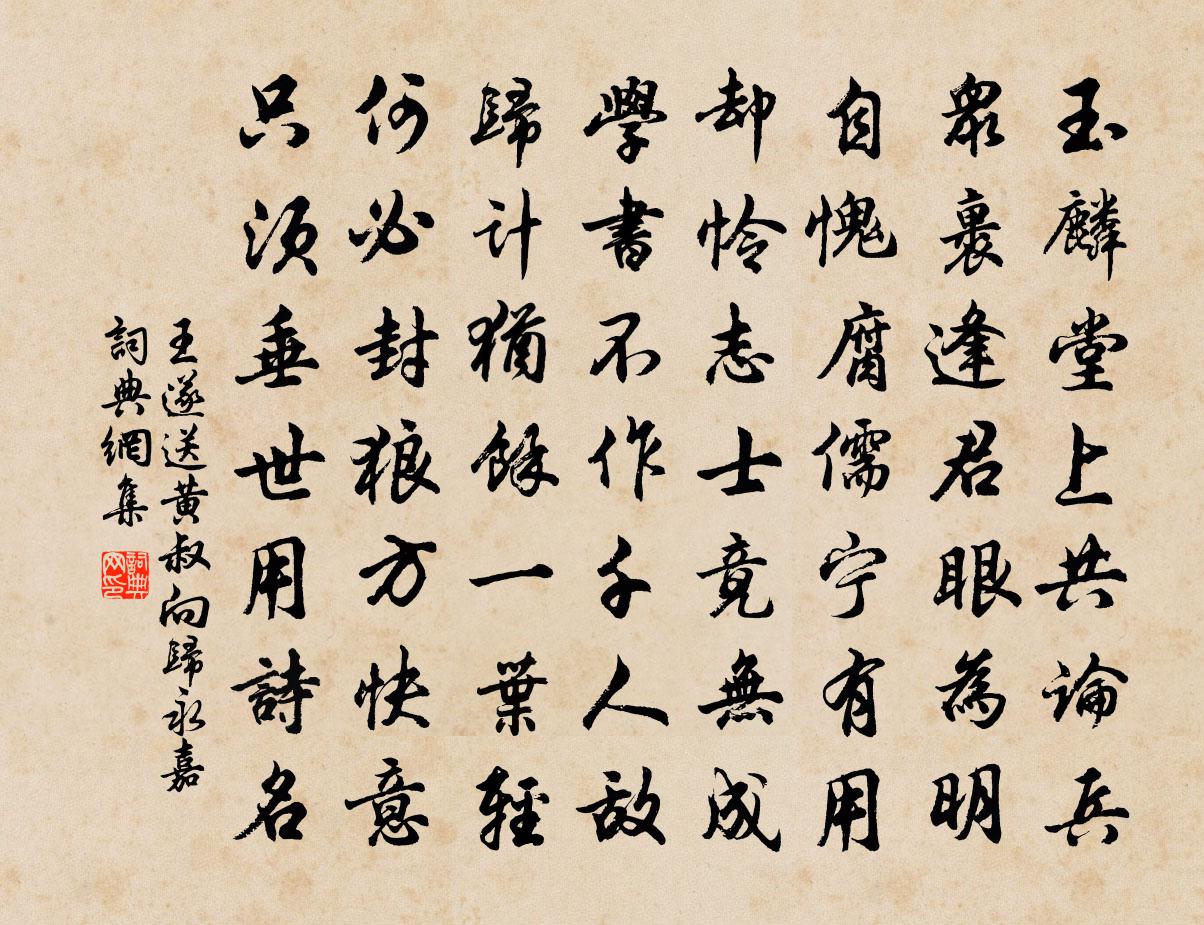 玉麟堂上共論兵
衆裏逢君眼為明
自愧腐儒宁有用
却怜志士竟無成
學書不作千人敌
歸計猶餘一葉輕
何必封狼方快意
只须垂世用詩名
王遂送黄叔向歸永嘉
詞典網集
詞典网印